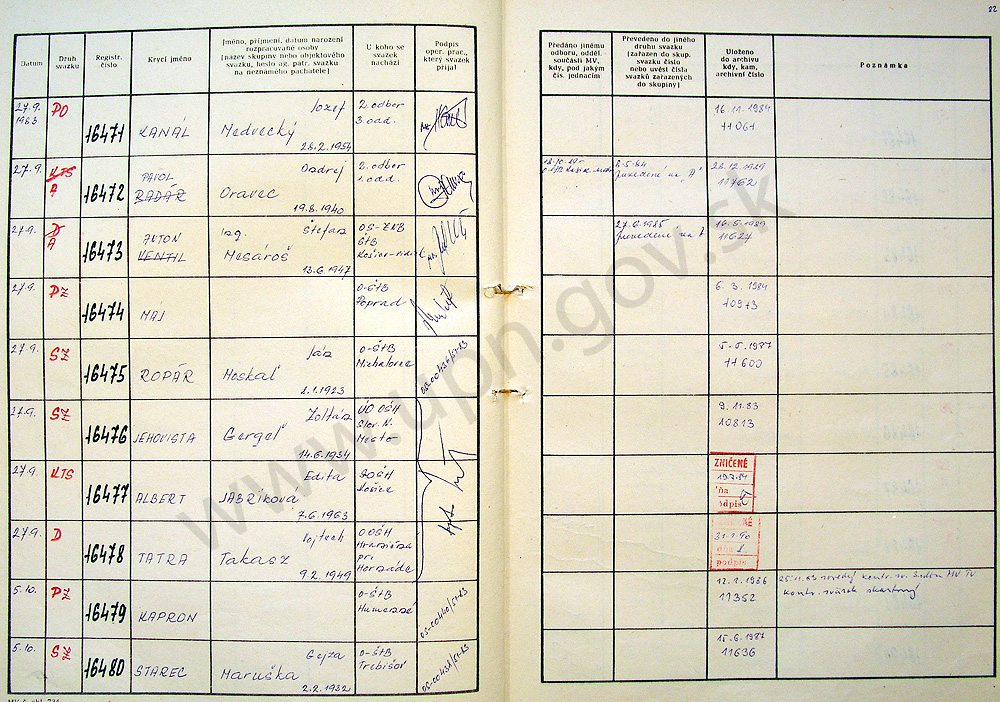 22
Datum
Druh svazku
Registr. číslo
Krycí jméno
Jméno, příjmení, datum narození
rozpracované osoby
[název skupiny nebo objektového
svazku, heslo ag. patr. svazku
na neznámého pachatele]
U koho se
svazek
nachází
Podpis
oper. prac.,
který svazek
přijal
Předáno jinému
odboru, odděl.
součásti MV,
kdy, pod jakým
čís. jednacím
Převedeno do jiného
druhu svazku
[zařazen do skup.
svazku číslo
nebo uvést čísla
svazků zařazených
do skupiny]
Uloženo
do archivu
kdy, kam,
archivní číslo
Poznámka
27.9. 1983 PO 16471 KANÁL Jozef Medvecký 28.2.1954 2. odbor 3. odd.
16.11.1984 11061
27.9. KTS A 16472 PAVOL RADÁR Ondrej Oravec 19.8.1940 2. odbor 1. odd.
prevedené na "A" 28.12.1989 11762
27.9. D A 16473 ANTON VENTIL Ing. Štefan Mesároš 13.6.1947 OS-ZNB ŠtB
27.6.1985 prevedené na A 16.5.1989 11627
27.9. PZ 16474 MÁJ O-ŠtB Poprad
6. 3. 1984 10973
27.9. SZ 16475 ROPÁR Ján Moskaľ 2.1.1923 O-ŠtB Michalovce
5.5.1987 11600
27.9. SZ 16476 JEHOVISTA Zoltán Gergeľ 14.6.1934 Mesto
9.11.83 10813
27.9. KTS 16477 ALBERT Edita JABRIKOVÁ 7.6.1963 Košice
ZNIČENÉ
podpis
27.9. D 16478 TATRA Vojtech Takasz 9.2.1949 OOŠH pri
31.1.90
podpis
5.10. PZ 16479 KAPRON O-ŠtB Humenné
12.2.1986 11352
5.10. SZ 16480 STAREC Gejza Maruška 2.2.1932 O-ŠtB Trebišov
15.6.1987 11636
www.upn.gov.sk